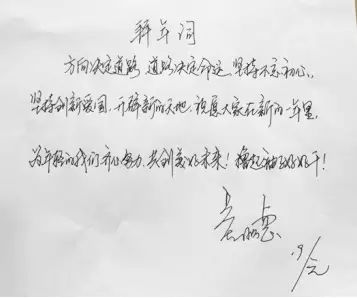 拜年词
方向决定道路,道路决定命运,坚持不忘初心,
坚持创新爱国,开辟新的天地,祝愿大家在新的一年里,
为年轻的我们齐心努力,共创美好未来!撸起袖子好好干!
19/元